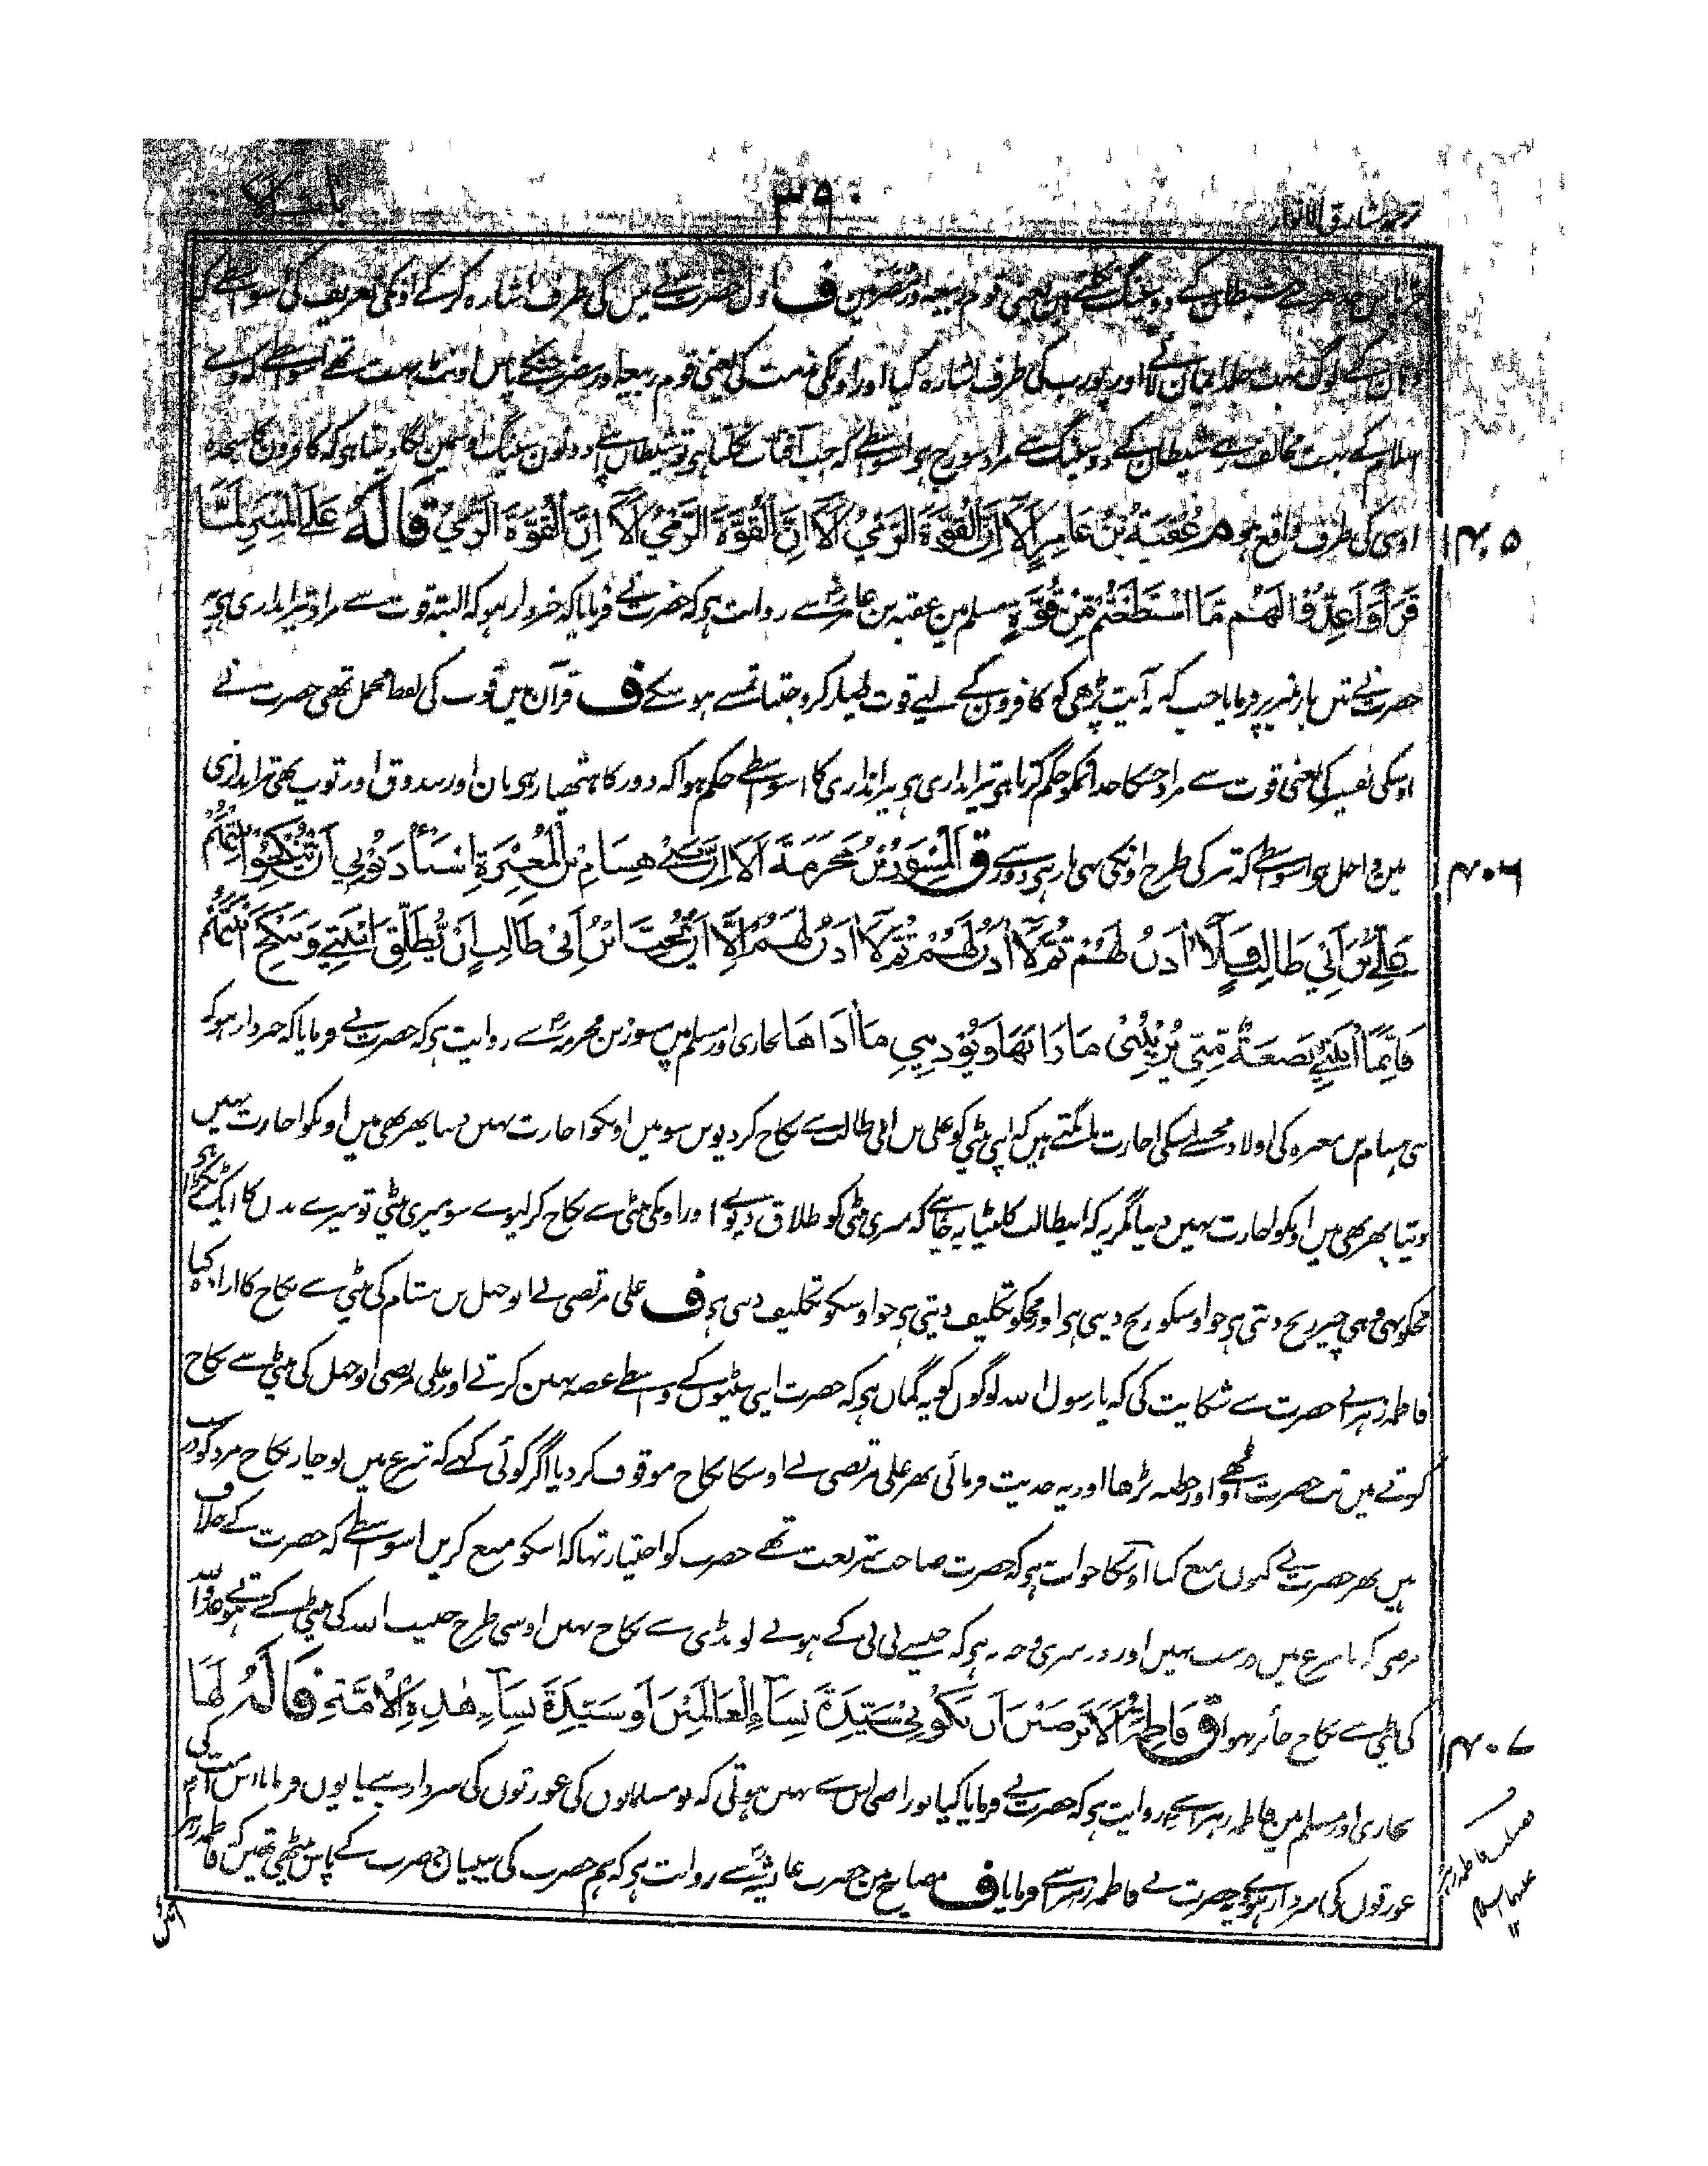 ترجمہ مشارق الانوار
۳۵۰
شیطان کے دو سینگ نکلتے ہیں یعنی قوم ربیعہ اور مضر میں ف اول حضرت نے یمن کی طرف اشارہ کر کے اونکی تعریف کی اسواسطے کہ
وہان کے لوگ بہت جلد ایمان لائے اور پورب کی طرف اشارہ کیا اور اونکی مذمت کی یعنی قوم ربیعہ اور مضر جنکے پاس اونٹ بہت تھے اسواسطے کہ وے
اسلام کے بہت مخالف رہے شیطان کے دو سینگ سے مراد سورج ہی اسواسطے کہ جب آفتاب نکلتا ہی تو شیطان اپنے دونون سینگ اوسمین لگا دیتا ہی کہ کافرون کا سجدہ
۱۴۰۵
اوسی کی طرف واقع ہو م عُقْبَةُ بْنُ عَامِرٍ اَلَآ اِنَّ الْقُوَّةَ الرَّمْيُ اَلَآ اِنَّ الْقُوَّةَ الرَّمْيُ اَلَآ اِنَّ الْقُوَّةَ الرَّمْيُ قَالَهُ عَلَى الْمِنْبَرِ لَمَّا
قَرَأَ وَاَعِدُّوْا لَهُمْ مَّا اسْتَطَعْتُمْ مِّنْ قُوَّةٍ مسلم مین عقبہ بن عامر سے روایت ہی کہ حضرت نے فرمایا کہ خبردار ہو کہ البتہ قوت سے مراد تیر اندازی ہی یہ
حضرت نے تین بار منبر پر فرمایا جب کہ یہ آیت پڑھی کہ کافرون کے لیے قوت طیار کرو جتنا تمسے ہو سکے ف قرآن میں قوت کی لفظ مجمل تھی حضرت نے
اوسکی تفسیر کی یعنی قوت سے مراد جسکا خدا تمکو حکم کرتا ہی تیر اندازی ہی تیر اندازی کا اسواسطے حکم ہوا کہ دور کا ہتھیار ہی بان اور بندوق اور توپ بھی تیر اندازی
۱۴۰۶
مین داخل ہی اسواسطے کہ تیر کی طرح اونکی بھی مار ہی دور سے ق اَلْمِسْوَرُ بْنُ مَخْرَمَةَ اَلَا اِنَّ بَنِيْ هِشَامِ بْنِ الْمُغِيْرَةِ اسْتَأْذَنُوْنِيْ اَنْ يُنْكِحُوا ابْنَتَهُمْ
عَلِيَّ بْنَ اَبِيْ طَالِبٍ فَلَآ اٰذَنُ لَهُمْ ثُمَّ لَآ اٰذَنُ لَهُمْ ثُمَّ لَآ اٰذَنُ لَهُمْ اِلَّآ اَنْ يُحِبَّ ابْنُ اَبِيْ طَالِبٍ اَنْ يُّطَلِّقَ ابْنَتِيْ وَيَنْكِحَ ابْنَتَهُمْ
فَاِنَّمَا ابْنَتِيْ بَضْعَةٌ مِّنِّيْ يُرِيْبُنِيْ مَا رَابَهَا وَيُؤْذِيْنِيْ مَا اٰذَاهَا بخاری اور مسلم میں مسور بن مخرمہ سے روایت ہی کہ حضرت نے فرمایا کہ خبردار ہو کہ
بنی ہشام بن مغیرہ کی اولاد مجھسے اسکی اجازت مانگتے ہیں کہ اپنی بیٹی کو علی بن ابی طالب سے نکاح کر دیویں سو میں اونکو اجازت نہیں دیتا پھر بھی میں اونکو اجازت نہیں
دیتا پھر بھی میں اونکو اجازت نہیں دیتا مگر یہ کہ ابیطالب کا بیٹا یہ چاہے کہ میری بیٹی کو طلاق دیوے اور اونکی بیٹی سے نکاح کر لیوے سو میری بیٹی تو میرے بدن کا ایک ٹکڑا ہی
مجکو بھی وہی چیز رنج دیتی ہی جو اوسکو رنج دیتی ہی اور مجکو تکلیف دیتی ہی جو اوسکو تکلیف دیتی ہی ف علی مرتضی نے ابوجہل بن ہشام کی بیٹی سے نکاح کا ارادہ کیا
فاطمہ زہرا نے حضرت سے شکایت کی کہ یا رسول اللہ لوگوں کو یہ گماں ہی کہ حضرت اپنی بیٹیوں کے واسطے غصہ نہیں کرتے اور علی مرتضی ابوجہل کی بیٹی سے نکاح
کرتے ہیں تب حضرت اوٹھے اور خطبہ پڑھا اور یہ حدیث فرمائی پھر علی مرتضی نے اوسکا نکاح موقوف کر دیا اگر کوئی کہے کہ شرع میں تو چار نکاح مرد کو درست
ہیں پھر حضرت نے کیوں منع کیا اوسکا جواب یہ ہی کہ حضرت صاحب شریعت تھے حضرت کو اختیار تھا کہ اسکو منع کریں اسواسطے کہ حضرت کے خلاف
مرضی کرنا شرع میں درست نہیں اور دوسری وجہ یہ ہی کہ جیسے بی بی کے ہوتے لونڈی سے نکاح نہیں اوسی طرح حبیب اللہ کی بیٹی کے ہوتے عدو اللہ
۱۴۰۷
کی بیٹی سے نکاح جائز نہوا ق فَاطِمَةُ اَلَا تَرْضَيْنَ اَنْ تَكُوْنِيْ سَيِّدَةَ نِسَآءِ الْعَالَمِيْنَ اَوْ سَيِّدَةَ نِسَآءِ هٰذِهِ الْاُمَّةِ قَالَهُ لَهَا
بخاری اور مسلم میں فاطمہ زہرا سے روایت ہی کہ حضرت نے فرمایا کیا تو راضی اس سے نہیں ہوتی کہ تو مسلمانوں کی عورتوں کی سردار بنے یا یوں فرمایا اس امت کی
عورتوں کی سردار ہو یہ حضرت نے فاطمہ زہرا سے فرمایا ف مصابیح مین حضرت عائشہ سے روایت ہی کہ ہم حضرت کی بیبیان حضرت کے پاس بیٹھی تھین کہ فاطمہ زہرا
فاطمہ زہرا
علیہا السلام
۱۲